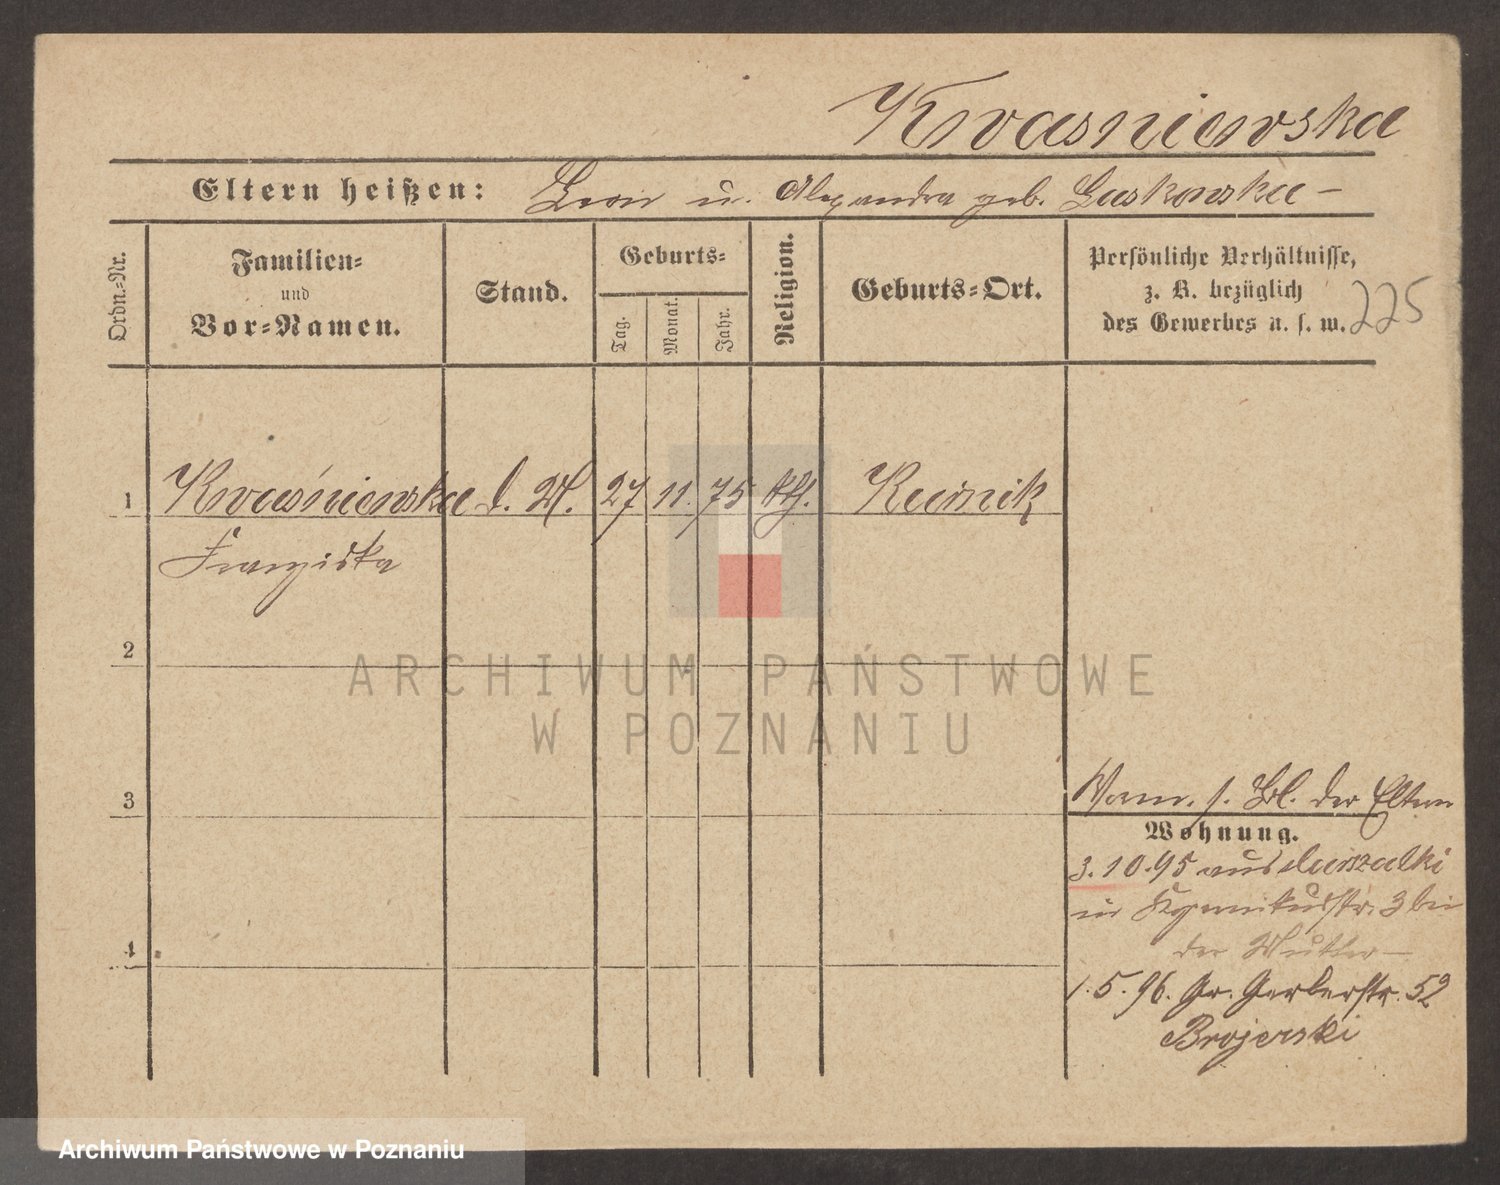 Kwasniewska
Eltern heißen: Leon u. Alexandra geb. Laskowska –
Ordn.-Nr.
Familien-
und
Vor-Namen.
Stand.
Geburts-
Tag.
Monat.
Jahr.
Religion.
Geburts-Ort.
Persönliche Verhältnisse,
z. B. bezüglich
des Gewerbes u. s. w.
225
1 Kwaśniewska d. M. 27 11. 75 kth. Kurnik
Franziska
2
ARCHIWUM PAŃSTWOWE
W POZNANIU
3
Vorm. s. Bl. der Eltern
Wohnung.
3.10.95 aus
in 3 bei
der Mutter –
4
1.5.96. Gr. Gerberstr. 52
Brojerski
Archiwum Państwowe w Poznaniu